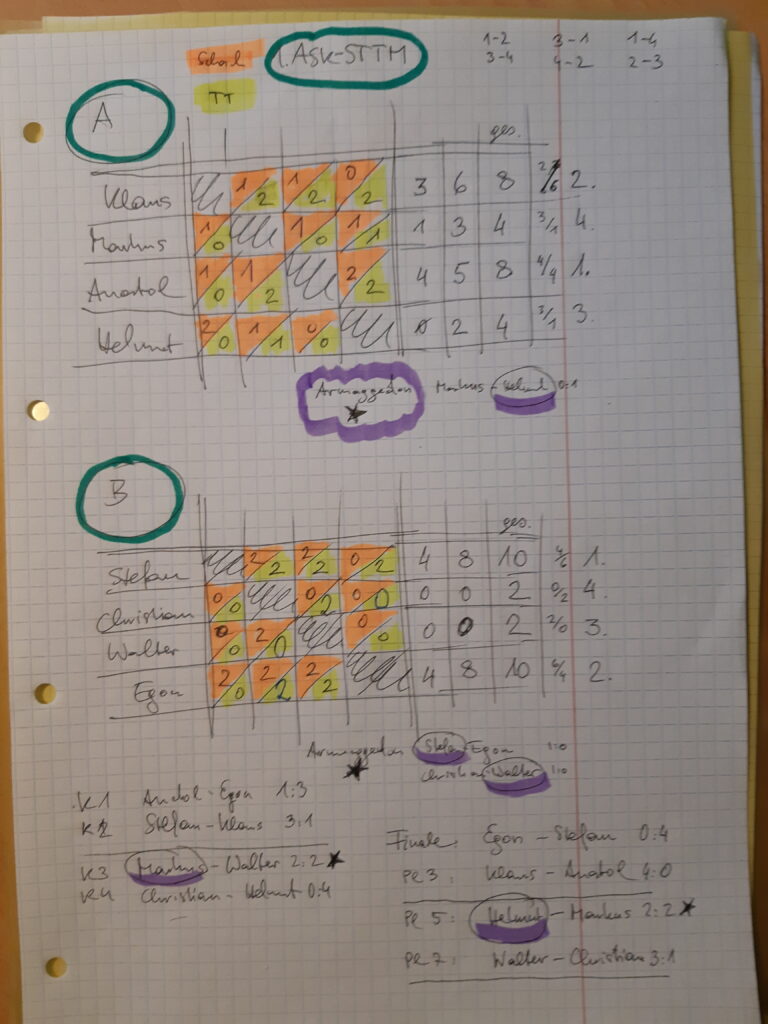 Schach 1. ASK-STTM 1-2 3-1 1-4
TT 3-4 4-2 2-3
A
ges.
Klaus 1/2 1/2 0/2 3 6 8 2/6 2.
Markus 1/0 1/0 1/1 1 3 4 3/1 4.
Anatol 1/0 1/2 2/2 4 5 8 4/4 1.
Helmut 2/0 1/1 0/0 2 4 3/1 3.
Armaggedon Markus - Helmut 0:1
B
ges.
Stefan 2/2 2/2 0/2 4 8 10 4/6 1.
Christian 0/0 0/2 0/0 0 0 2 0/2 4.
Walter 0/0 2/0 0/0 0 0 2 2/0 3.
Egon 2/0 2/2 2/2 4 8 10 6/4 2.
Armaggedon Stefan-Egon 1:0
Christian-Walter 1:0
K1 Anatol-Egon 1:3
K2 Stefan-Klaus 3:1
K3 Markus-Walter 2:2
K4 Christian-Helmut 0:4
Finale: Egon-Stefan 0:4
Pl 3: Klaus-Anatol 4:0
Pl 5: Helmut-Markus 2:2
Pl 7: Walter-Christian 3:1